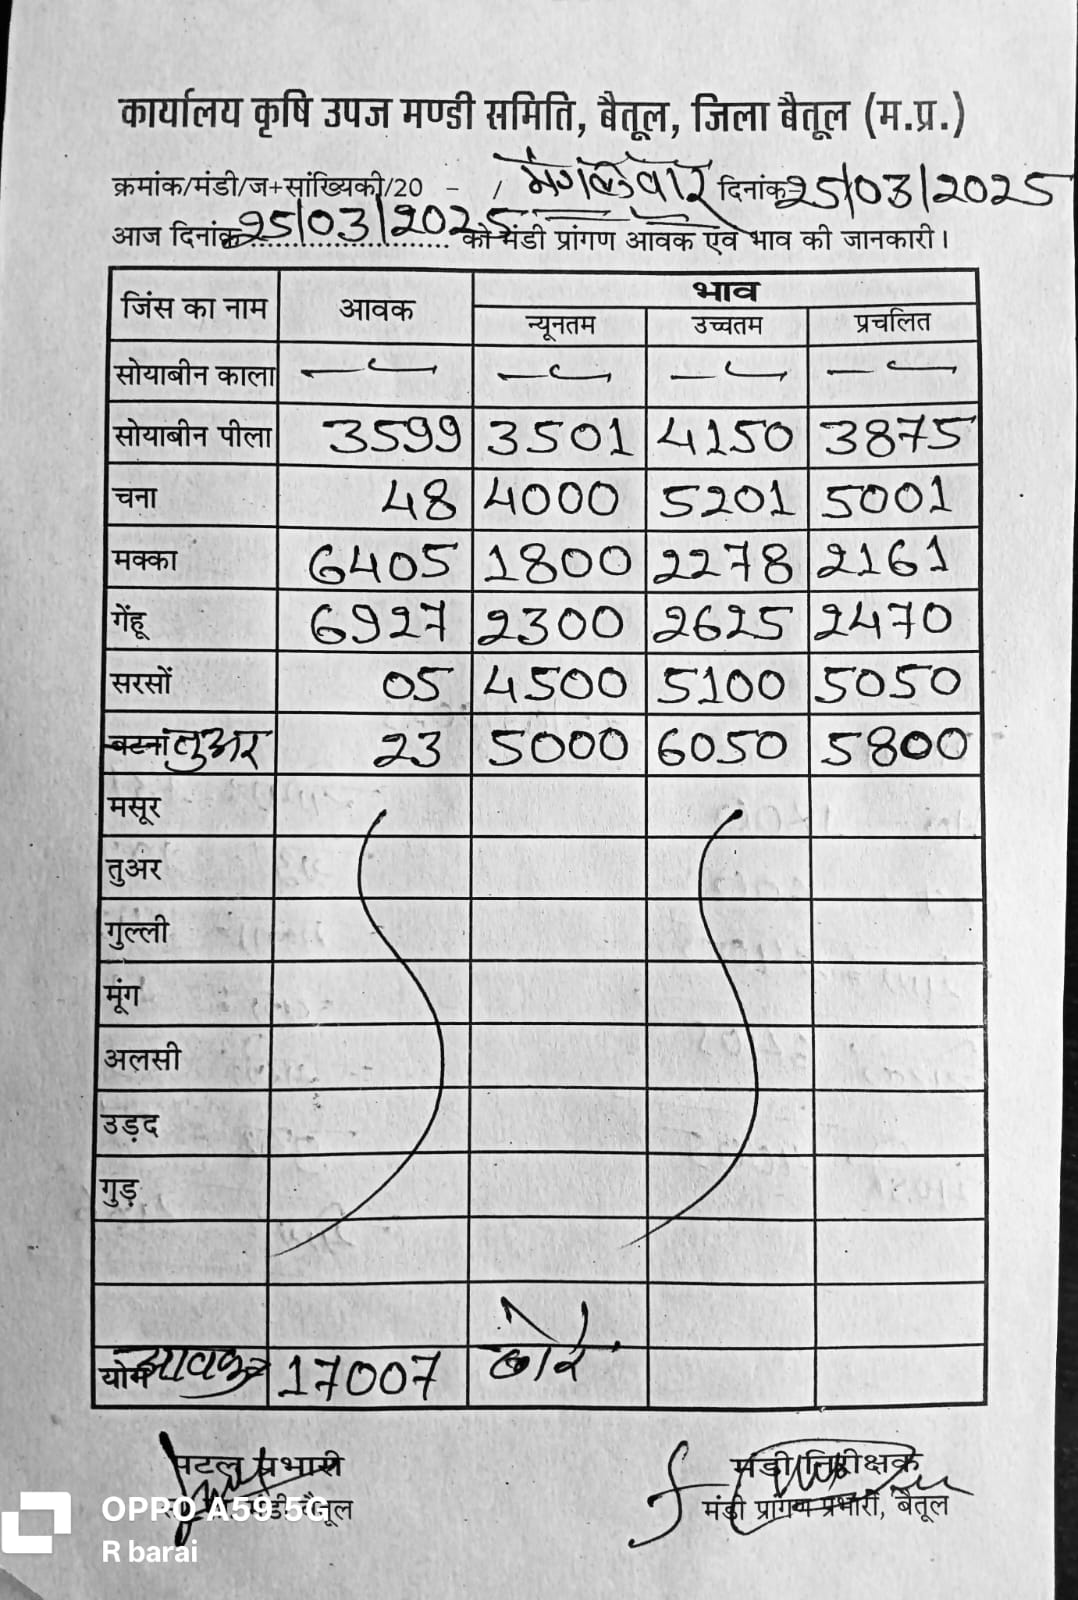 कार्यालय कृषि उपज मण्डी समिति, बैतूल, जिला बैतूल (म.प्र.)
क्रमांक/मंडी/ज+सांख्यिकी/20 - / मंगलवार दिनांक 25/03/2025
आज दिनांक 25/03/2025 को मंडी प्रांगण आवक एवं भाव की जानकारी।
जिंस का नाम आवक भाव
न्यूनतम उच्चतम प्रचलित
सोयाबीन काला — — — —
सोयाबीन पीला 3599 3501 4150 3875
चना 48 4000 5201 5001
मक्का 6405 1800 2278 2161
गेंहू 6927 2300 2625 2470
सरसों 05 4500 5100 5050
बटना तुअर 23 5000 6050 5800
मसूर
तुअर
गुल्ली
मूंग
अलसी
उड़द
गुड़
योग आवक 17007 बोरे
पटल प्रभारी मंडी निरीक्षक
मंडी बैतूल मंडी प्रांगण प्रभारी, बैतूल
OPPO A59 5G
R barai